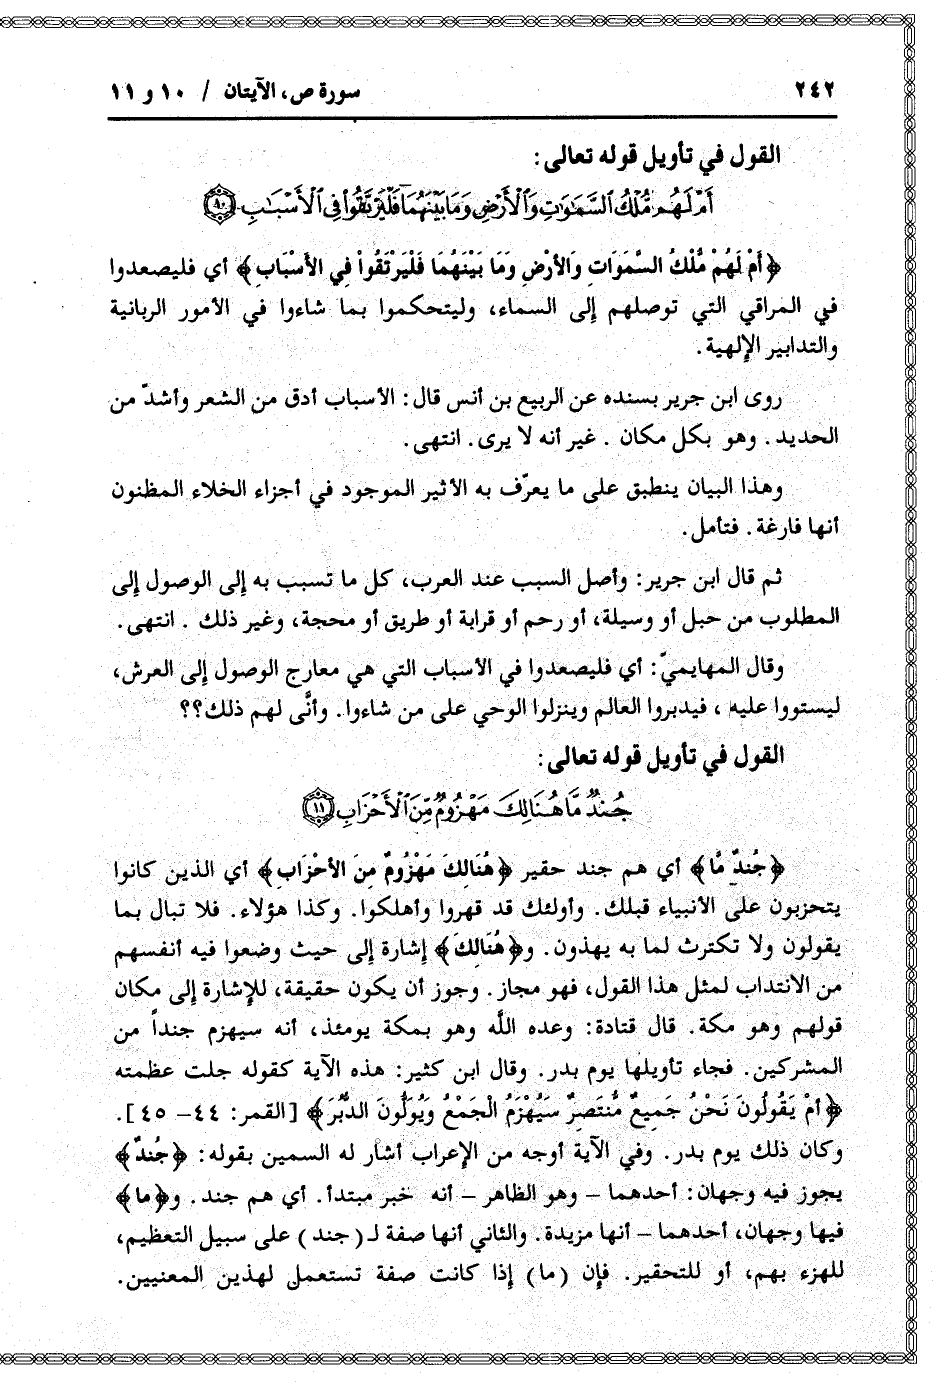 ٢٤٢ سورة ص، الآيتان / ١٠ و ١١
القول في تأويل قوله تعالى:
أَمْ لَهُم مُّلْكُ ٱلسَّمَٰوَٰتِ وَٱلْأَرْضِ وَمَا بَيْنَهُمَا فَلْيَرْتَقُوا۟ فِى ٱلْأَسْبَٰبِ ۝١٠
﴿أَمْ لَهُمْ مُلْكُ السَّمَوَاتِ وَالأَرْضِ وَمَا بَيْنَهُمَا فَلْيَرْتَقُوا فِي الأَسْبَابِ﴾ أي فليصعدوا
في المراقي التي توصلهم إلى السماء، وليتحكموا بما شاءوا في الأمور الربانية
والتدابير الإلهية.
روى ابن جرير بسنده عن الربيع بن أنس قال: الأسباب أدق من الشعر وأشدّ من
الحديد. وهو بكل مكان. غير أنه لا يرى. انتهى.
وهذا البيان ينطبق على ما يعرّف به الأثير الموجود في أجزاء الخلاء المظنون
أنها فارغة. فتأمل.
ثم قال ابن جرير: وأصل السبب عند العرب، كل ما تسبب به إلى الوصول إلى
المطلوب من حبل أو وسيلة، أو رحم أو قرابة أو طريق أو محجة، وغير ذلك. انتهى.
وقال المهايميّ: أي فليصعدوا في الأسباب التي هي معارج الوصول إلى العرش،
ليستووا عليه، فيدبروا العالم وينزلوا الوحي على من شاءوا. وأنَّى لهم ذلك؟؟
القول في تأويل قوله تعالى:
جُندٌ مَّا هُنَالِكَ مَهْزُومٌ مِّنَ ٱلْأَحْزَابِ ۝١١
﴿جُندٌ مَّا﴾ أي هم جند حقير ﴿هُنَالِكَ مَهْزُومٌ مِنَ الأَحْزَابِ﴾ أي الذين كانوا
يتحزبون على الأنبياء قبلك. وأولئك قد قهروا وأهلكوا. وكذا هؤلاء. فلا تبال بما
يقولون ولا تكترث لما به يهذون. و﴿هُنَالِكَ﴾ إشارة إلى حيث وضعوا فيه أنفسهم
من الانتداب لمثل هذا القول، فهو مجاز. وجوز أن يكون حقيقة، للإشارة إلى مكان
قولهم وهو مكة. قال قتادة: وعده الله وهو بمكة يومئذ، أنه سيهزم جنداً من
المشركين. فجاء تأويلها يوم بدر. وقال ابن كثير: هذه الآية كقوله جلت عظمته
﴿أَمْ يَقُولُونَ نَحْنُ جَمِيعٌ مُنْتَصِرٌ سَيُهْزَمُ الْجَمْعُ وَيُوَلُّونَ الدُّبُرَ﴾ [القمر: ٤٤– ٤٥].
وكان ذلك يوم بدر. وفي الآية أوجه من الإعراب أشار له السمين بقوله: ﴿جُندٌ﴾
يجوز فيه وجهان: أحدهما – وهو الظاهر – أنه خبر مبتدأ. أي هم جند. و﴿ما﴾
فيها وجهان، أحدهما – أنها مزيدة. والثاني أنها صفة لـ(جند) على سبيل التعظيم،
للهزء بهم، أو للتحقير. فإن (ما) إذا كانت صفة تستعمل لهذين المعنيين.